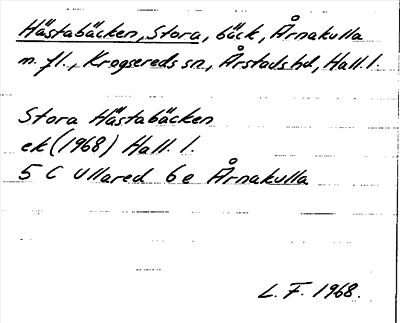 Hästabäcken, Stora, bäck, Årnakulla
m. fl., Krogsereds sn, Årstads hd, Hall. l.
Stora Hästabäcken
ek (1968) Hall. l.
5 C Ullared 6 e Årnakulla
L. F. 1968.